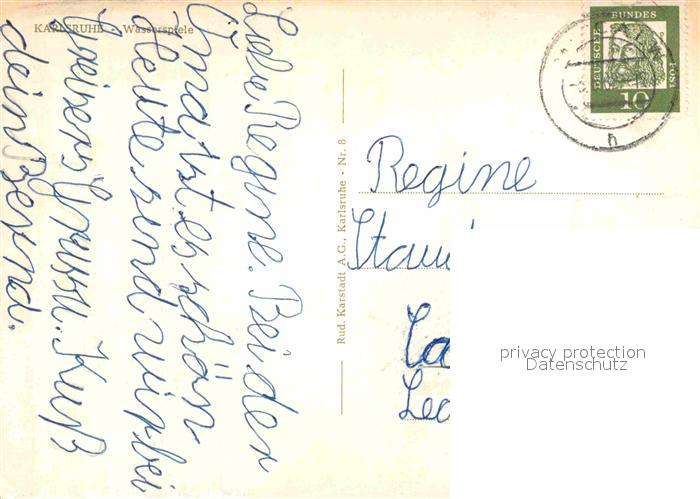 KARLSRUHE - Wasserspiele
Liebe Regine. Bei der
Oma ist es schön
Heute send wir bei
Gruss u. Kuß
dein Bernd.
Rud. Karstadt A.G., Karlsruhe - Nr. 8
Regine
DEUTSCHE
BUNDES
POST
10
h
privacy protection
Datenschutz